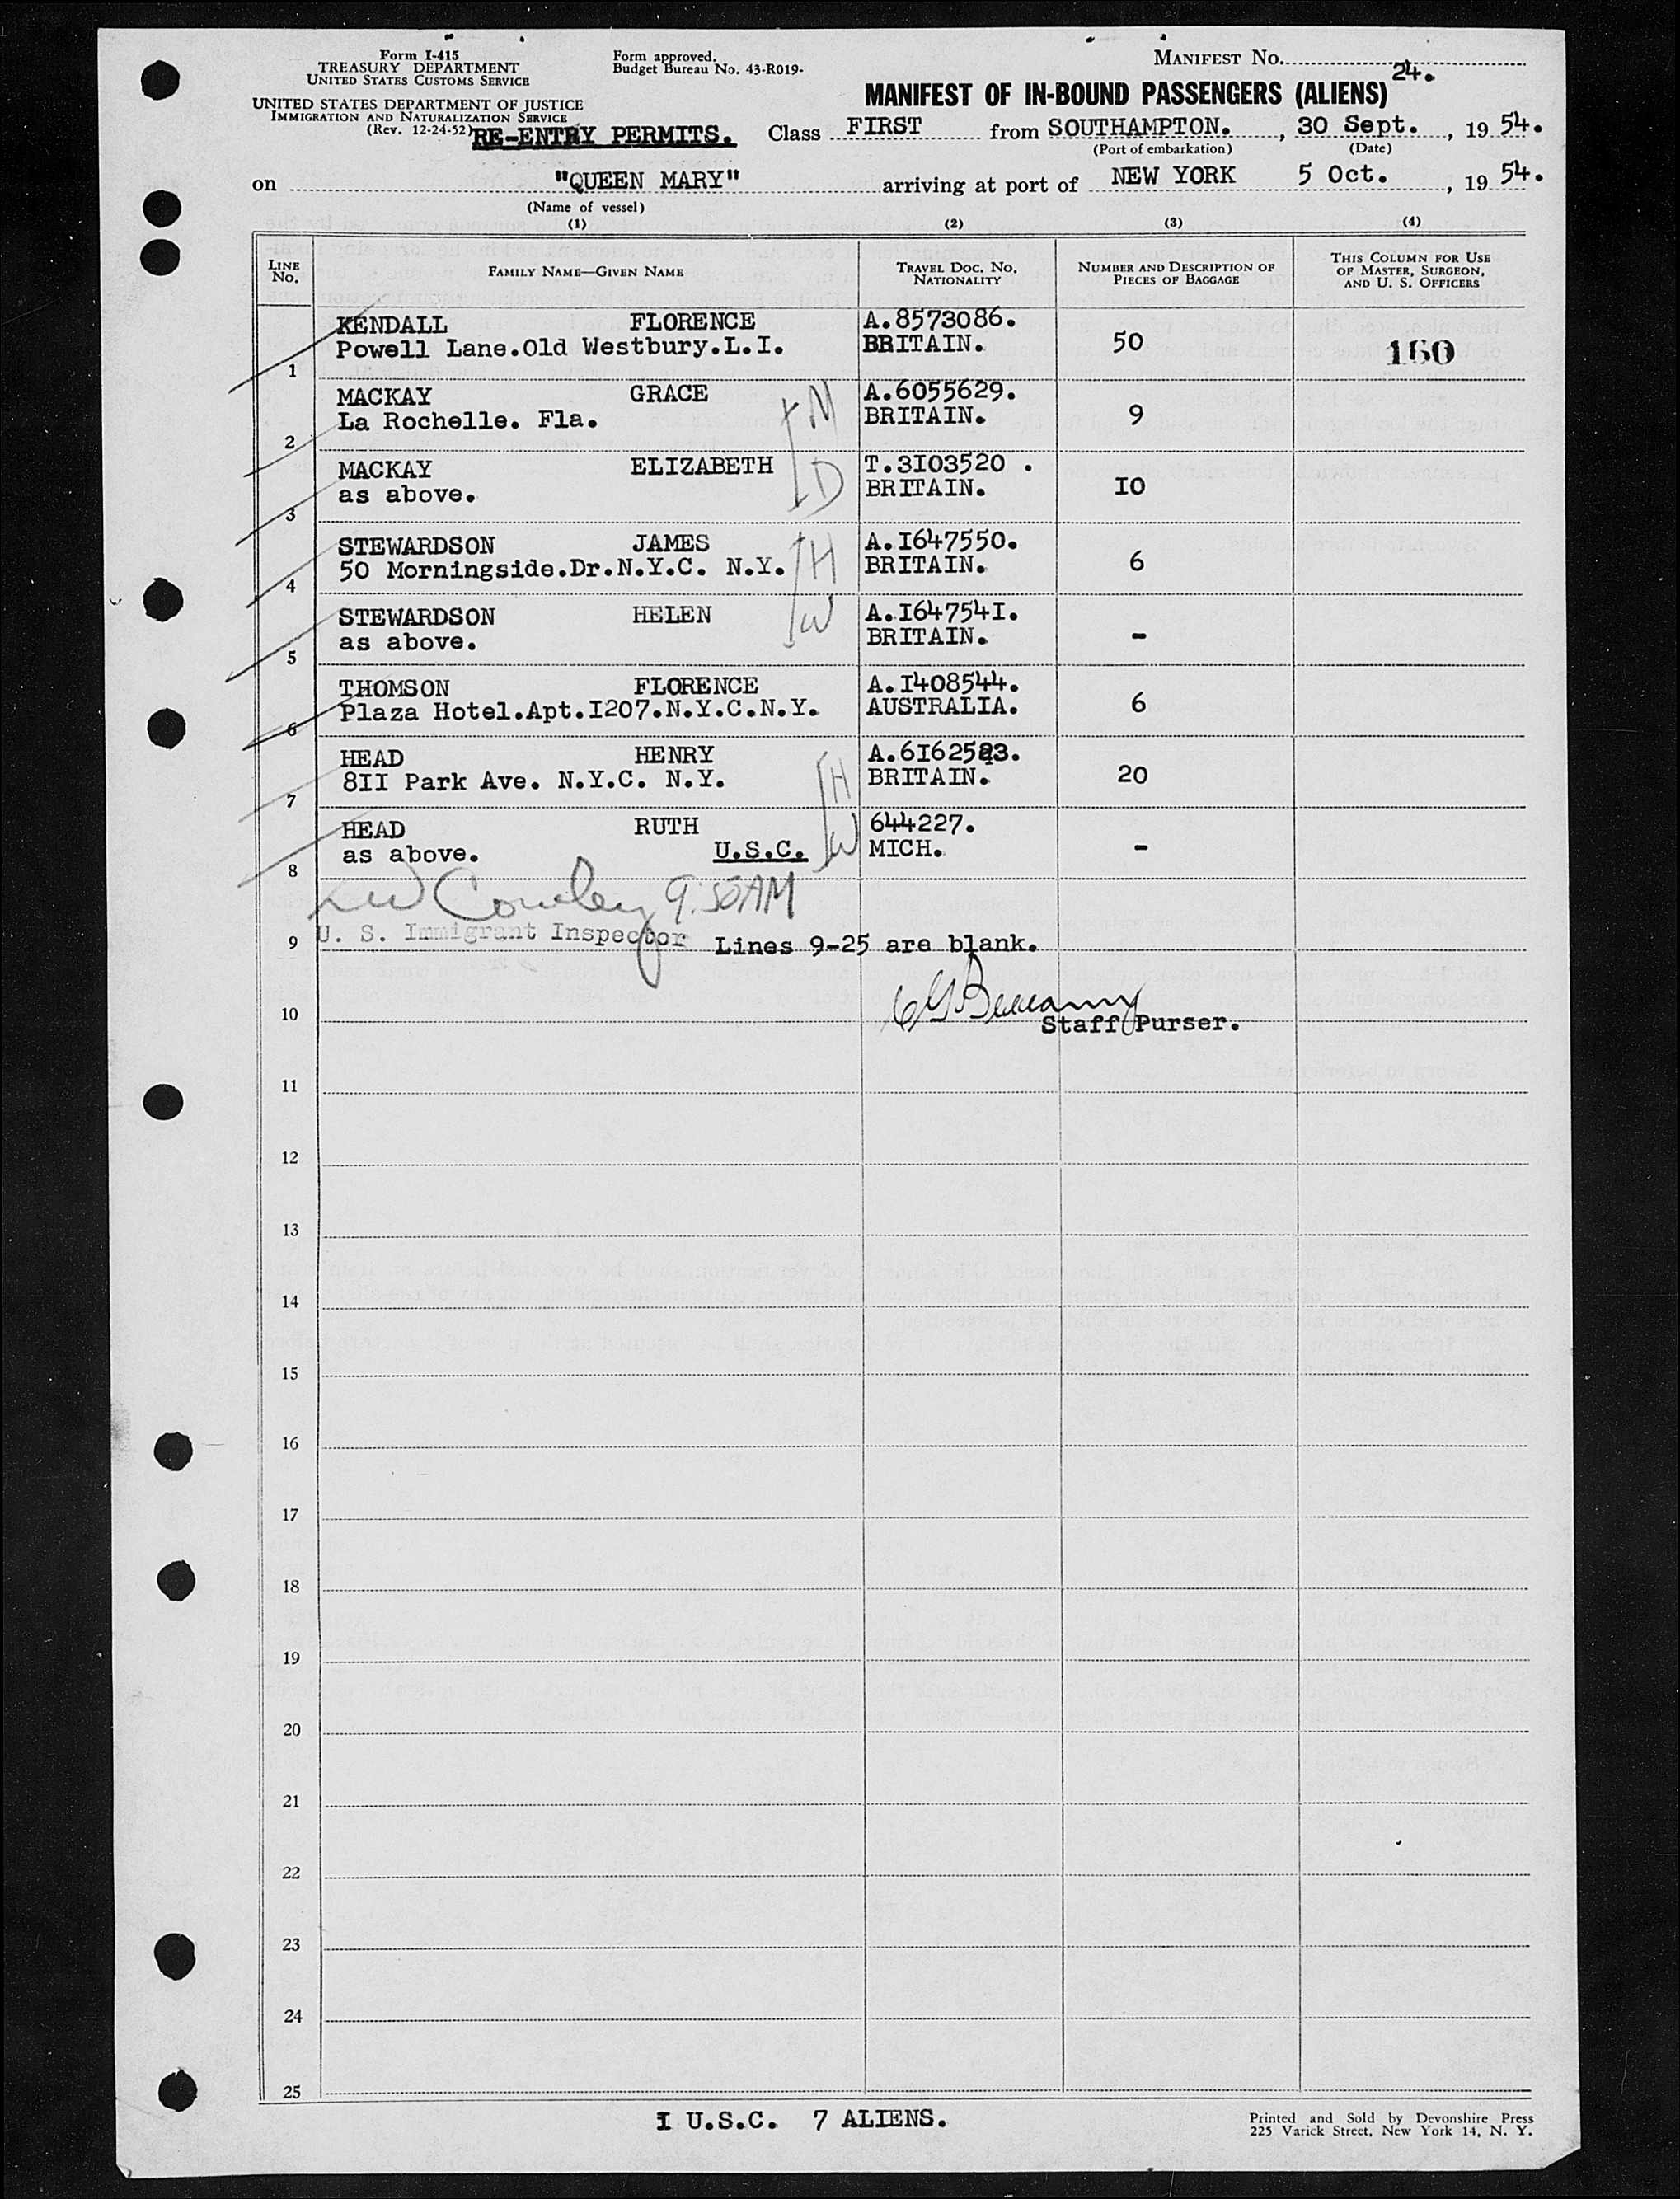 Form I-415
TREASURY DEPARTMENT
UNITED STATES CUSTOMS SERVICE
UNITED STATES DEPARTMENT OF JUSTICE
IMMIGRATION AND NATURALIZATION SERVICE
(Rev. 12-24-52)
RE-ENTRY PERMITS.
Form approved.
Budget Bureau No. 43-R019-
MANIFEST No.
24.
MANIFEST OF IN-BOUND PASSENGERS (ALIENS)
Class FIRST from SOUTHAMPTON. , 30 Sept. , 19 54.
(Port of embarkation) (Date)
on "QUEEN MARY" arriving at port of NEW YORK 5 Oct. , 19 54.
(Name of vessel)
(1) (2) (3) (4)
LINE No. FAMILY NAME—GIVEN NAME TRAVEL DOC. No. NATIONALITY NUMBER AND DESCRIPTION OF PIECES OF BAGGAGE THIS COLUMN FOR USE OF MASTER, SURGEON, AND U. S. OFFICERS
KENDALL FLORENCE A.8573086.
1 Powell Lane.Old Westbury.L.I. BRITAIN. 50 160
MACKAY GRACE M A.6055629.
2 La Rochelle. Fla. BRITAIN. 9
MACKAY ELIZABETH D T.3I03520 .
3 as above. BRITAIN. IO
STEWARDSON JAMES H A.I647550.
4 50 Morningside.Dr.N.Y.C. N.Y. BRITAIN. 6
STEWARDSON HELEN W A.I64754I.
5 as above. BRITAIN. -
THOMSON FLORENCE A.I408544.
6 Plaza Hotel.Apt.I207.N.Y.C.N.Y. AUSTRALIA. 6
HEAD HENRY H
7 8II Park Ave. N.Y.C. N.Y. BRITAIN. 20
HEAD RUTH W 644227.
8 as above. U.S.C. MICH. -
9.50AM
9 U. S. Immigrant Inspector Lines 9-25 are blank.
10 Staff Purser.
11
12
13
14
15
16
17
18
19
20
21
22
23
24
25
I U.S.C. 7 ALIENS.
Printed and Sold by Devonshire Press
225 Varick Street, New York 14, N. Y.